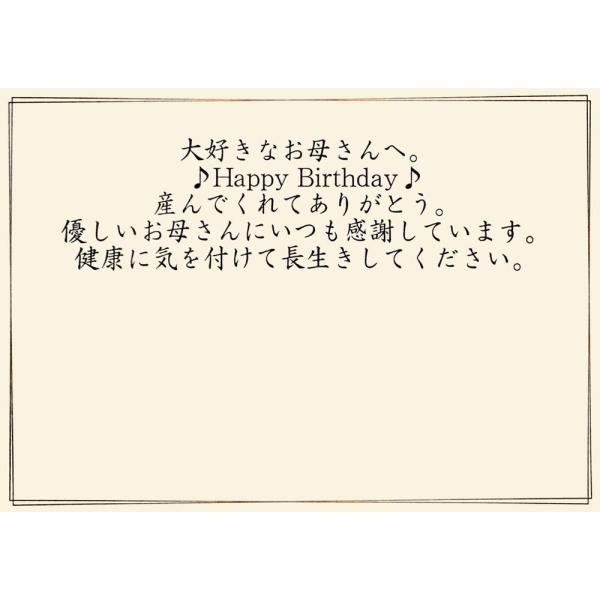 大好きなお母さんへ。
♪Happy Birthday♪
産んでくれてありがとう。
優しいお母さんにいつも感謝しています。
健康に気を付けて長生きしてください。